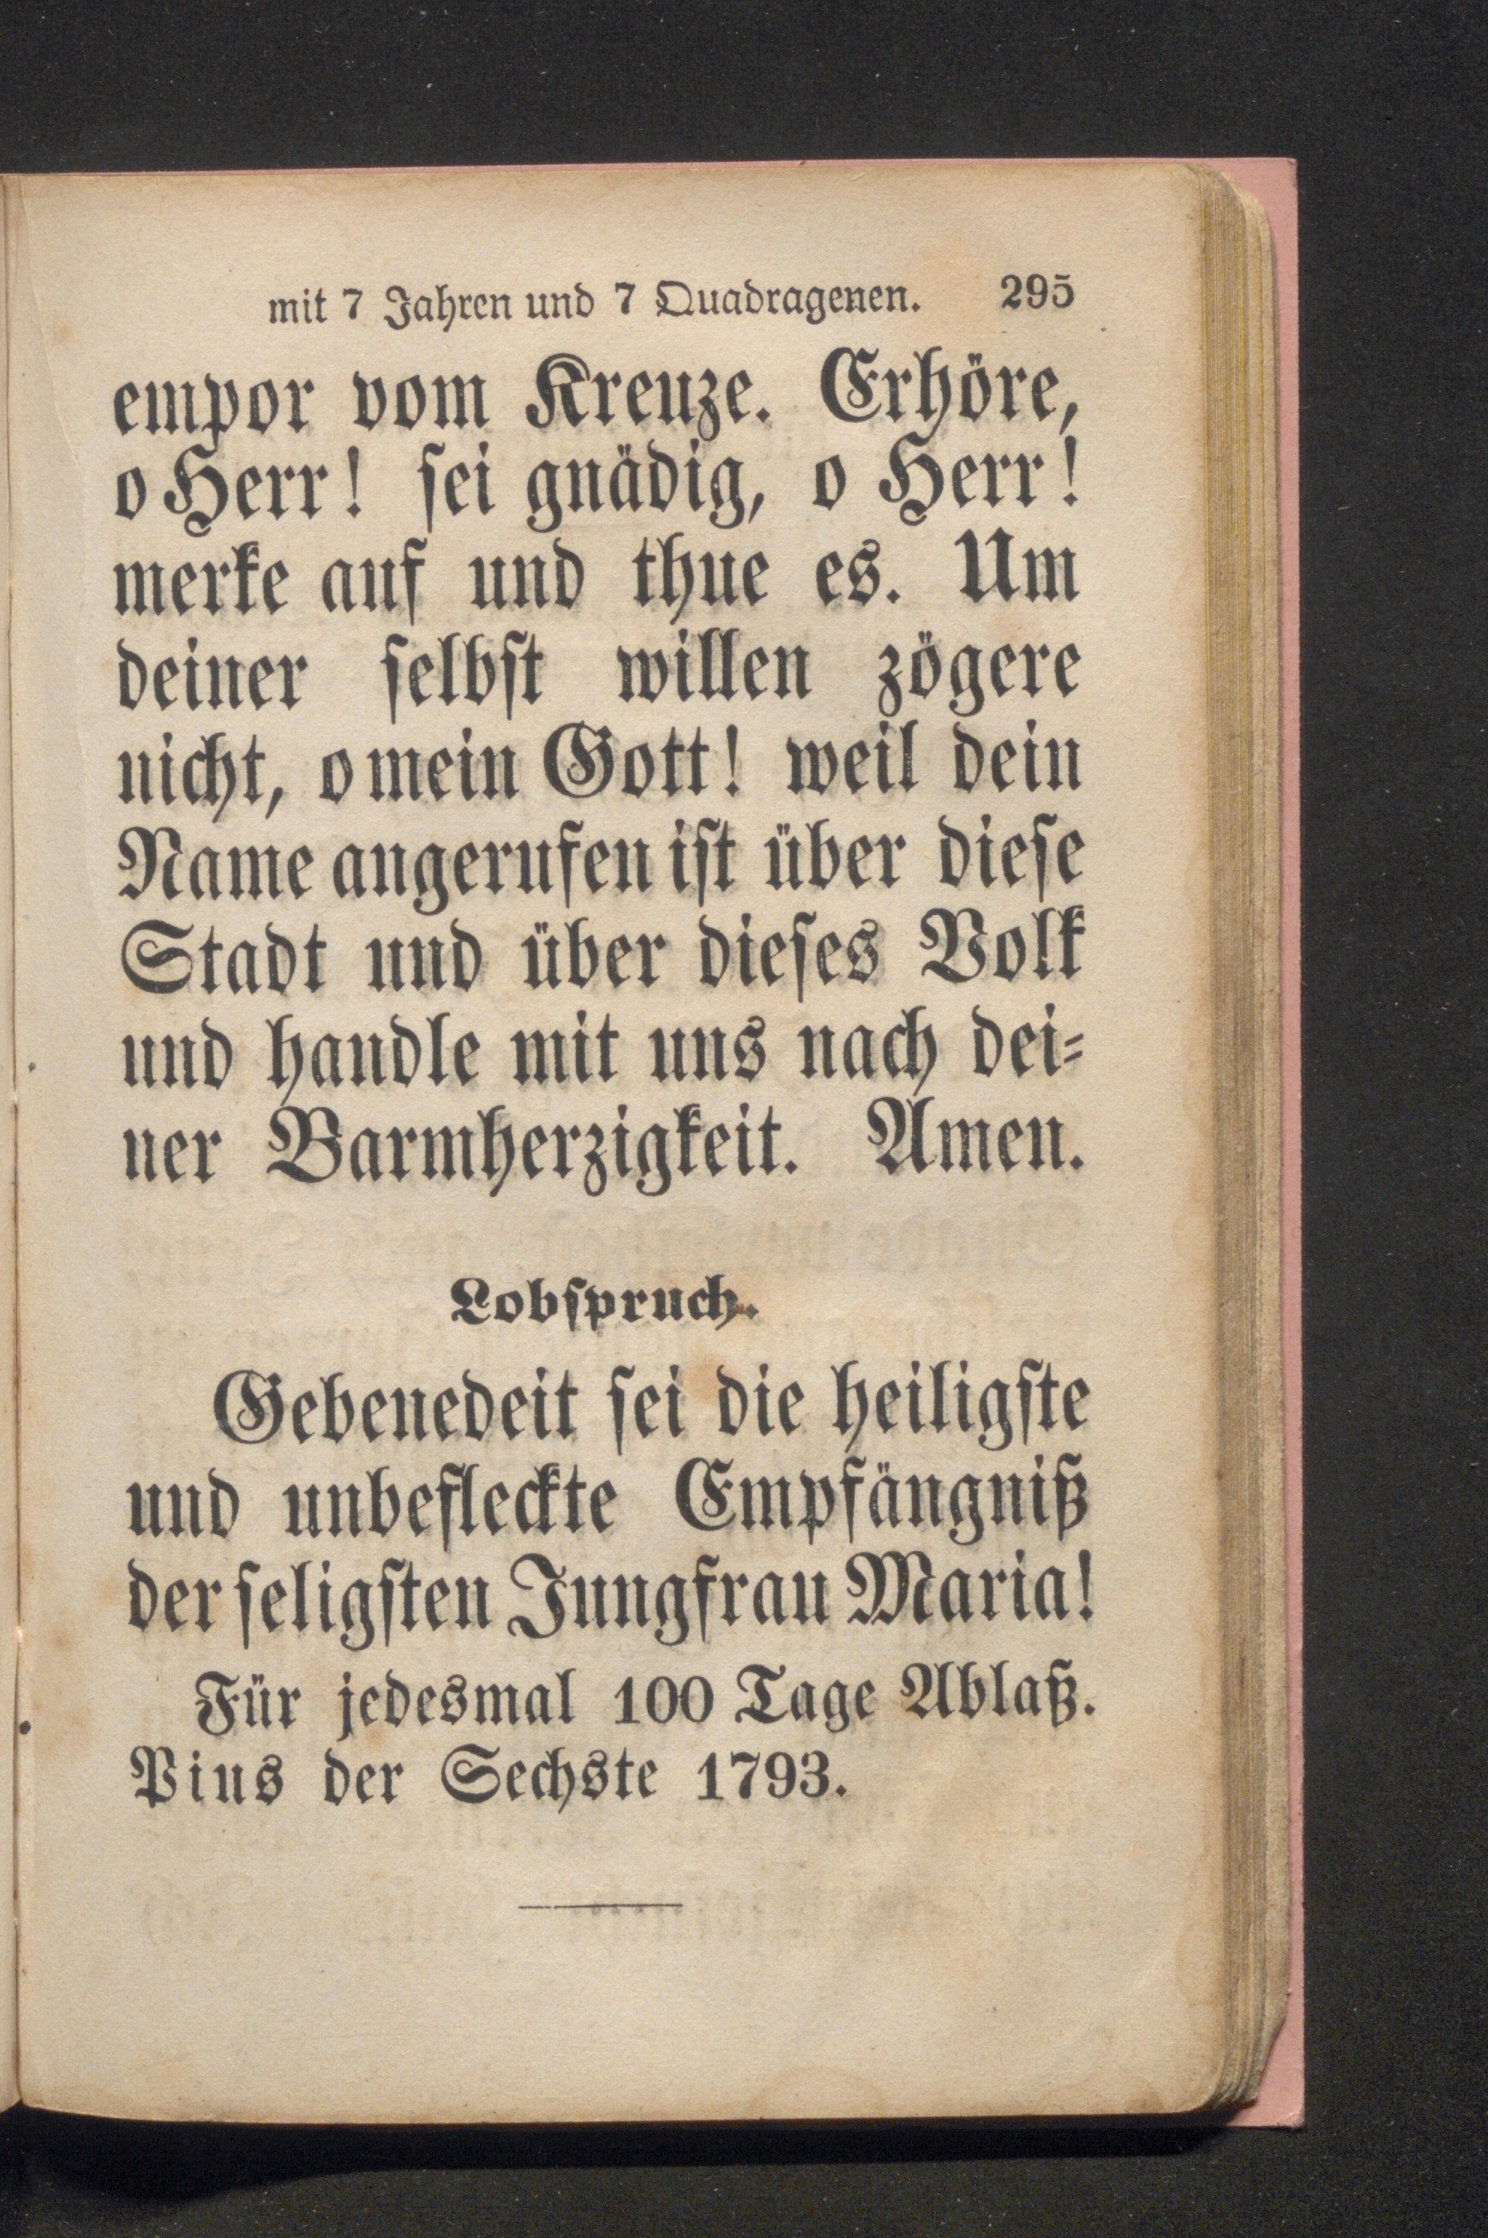 mit 7 Jahren und 7 Quadragenen. 295
empor vom Kreuze. Erhöre,
o Herr! ſei gnädig, o Herr!
merke auf und thue es. Um
deiner ſelbſt willen zögere
nicht, o mein Gott! weil dein
Name angerufen iſt über dieſe
Stadt und über dieſes Volk
und handle mit uns nach dei⸗
ner Barmherzigkeit. Amen.
Lobſpruch.
Gebenedeit ſei die heiligſte
und unbefleckte Empfängniß
der ſeligſten Jungfrau Maria!
Für jedesmal 100 Tage Ablaß.
Pius der Sechste 1793.